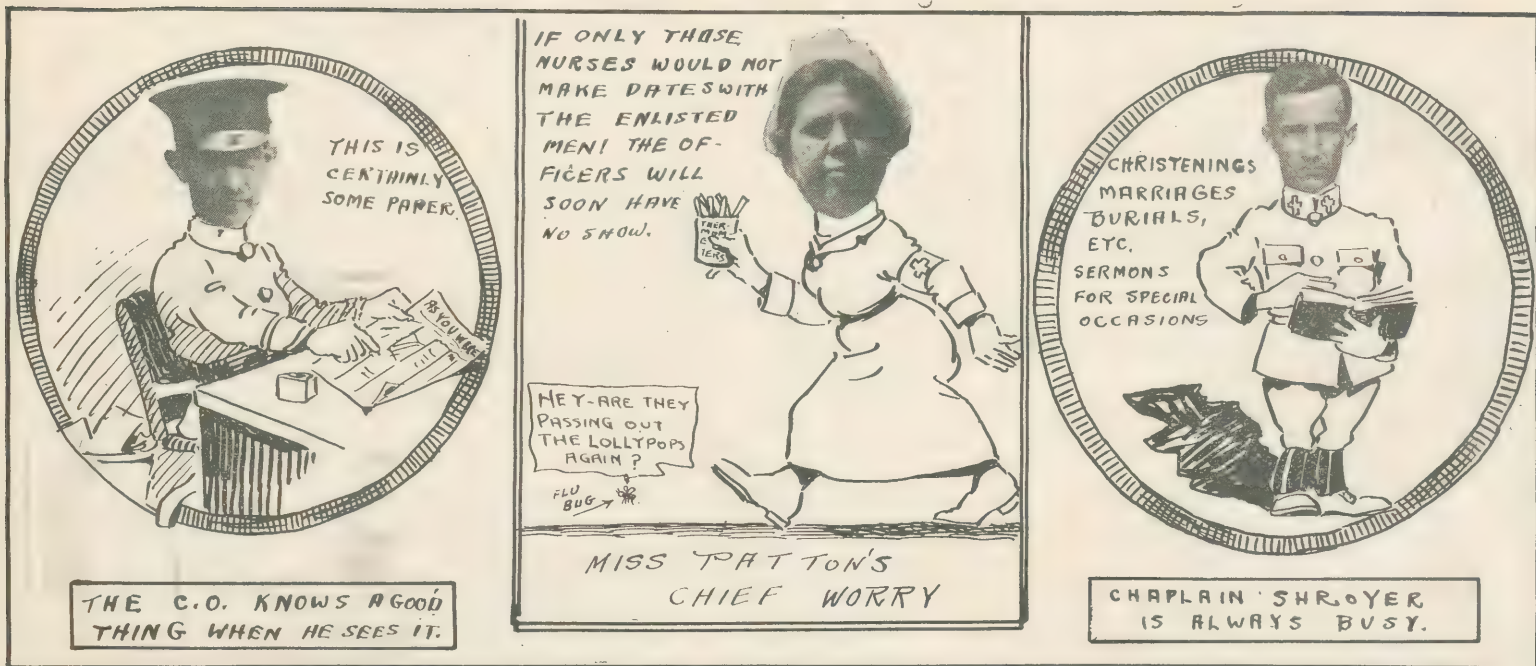 THIS IS
CERTAINLY
SOME PAPER.
AS YOU WERE
THE C.O. KNOWS A GOOD
THING WHEN HE SEES IT.
IF ONLY THOSE
NURSES WOULD NOT
MAKE DATES WITH
THE ENLISTED
MEN! THE OF-
FICERS WILL
SOON HAVE
NO SHOW.
THER-
MOM
E-
TERS
HEY-ARE THEY
PASSING OUT
THE LOLLYPOPS
AGAIN?
FLU
BUG
MISS PATTON'S
CHIEF WORRY
CHRISTENINGS
MARRIAGES
BURIALS,
ETC.
SERMONS
FOR SPECIAL
OCCASIONS
CHAPLAIN SHROYER
IS ALWAYS BUSY.